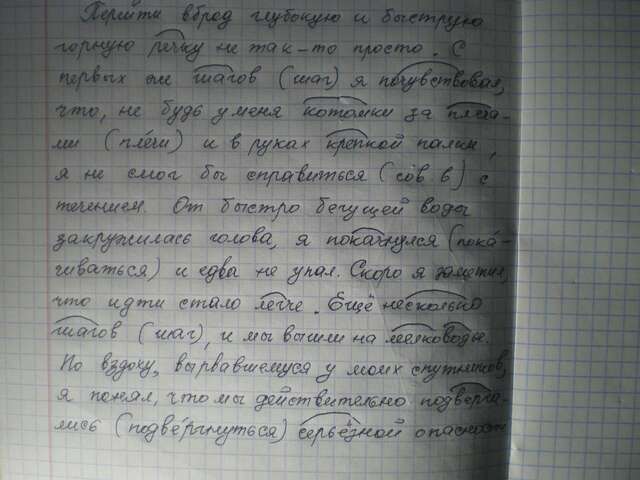 Перейти вброд глубокую и быструю
горную речку не так-то просто. С
первых же шагов (шаг) я почувствовал,
что, не будь у меня котомки за плеча-
ми (пле́чи) и в руках крепкой палки,
я не смог бы справиться (сов. в) с
течением. От быстро бегущей воды
закружилась голова, я покачнулся (пока́-
чиваться) и едва не упал. Скоро я заметил,
что идти стало легче. Ещё несколько
шагов (шаг), и мы вышли на мелководье.
По вздоху, вырвавшемуся у моих спутников,
я понял, что мы действительно подверга-
лись (подве́ргнуться) серьёзной опасности